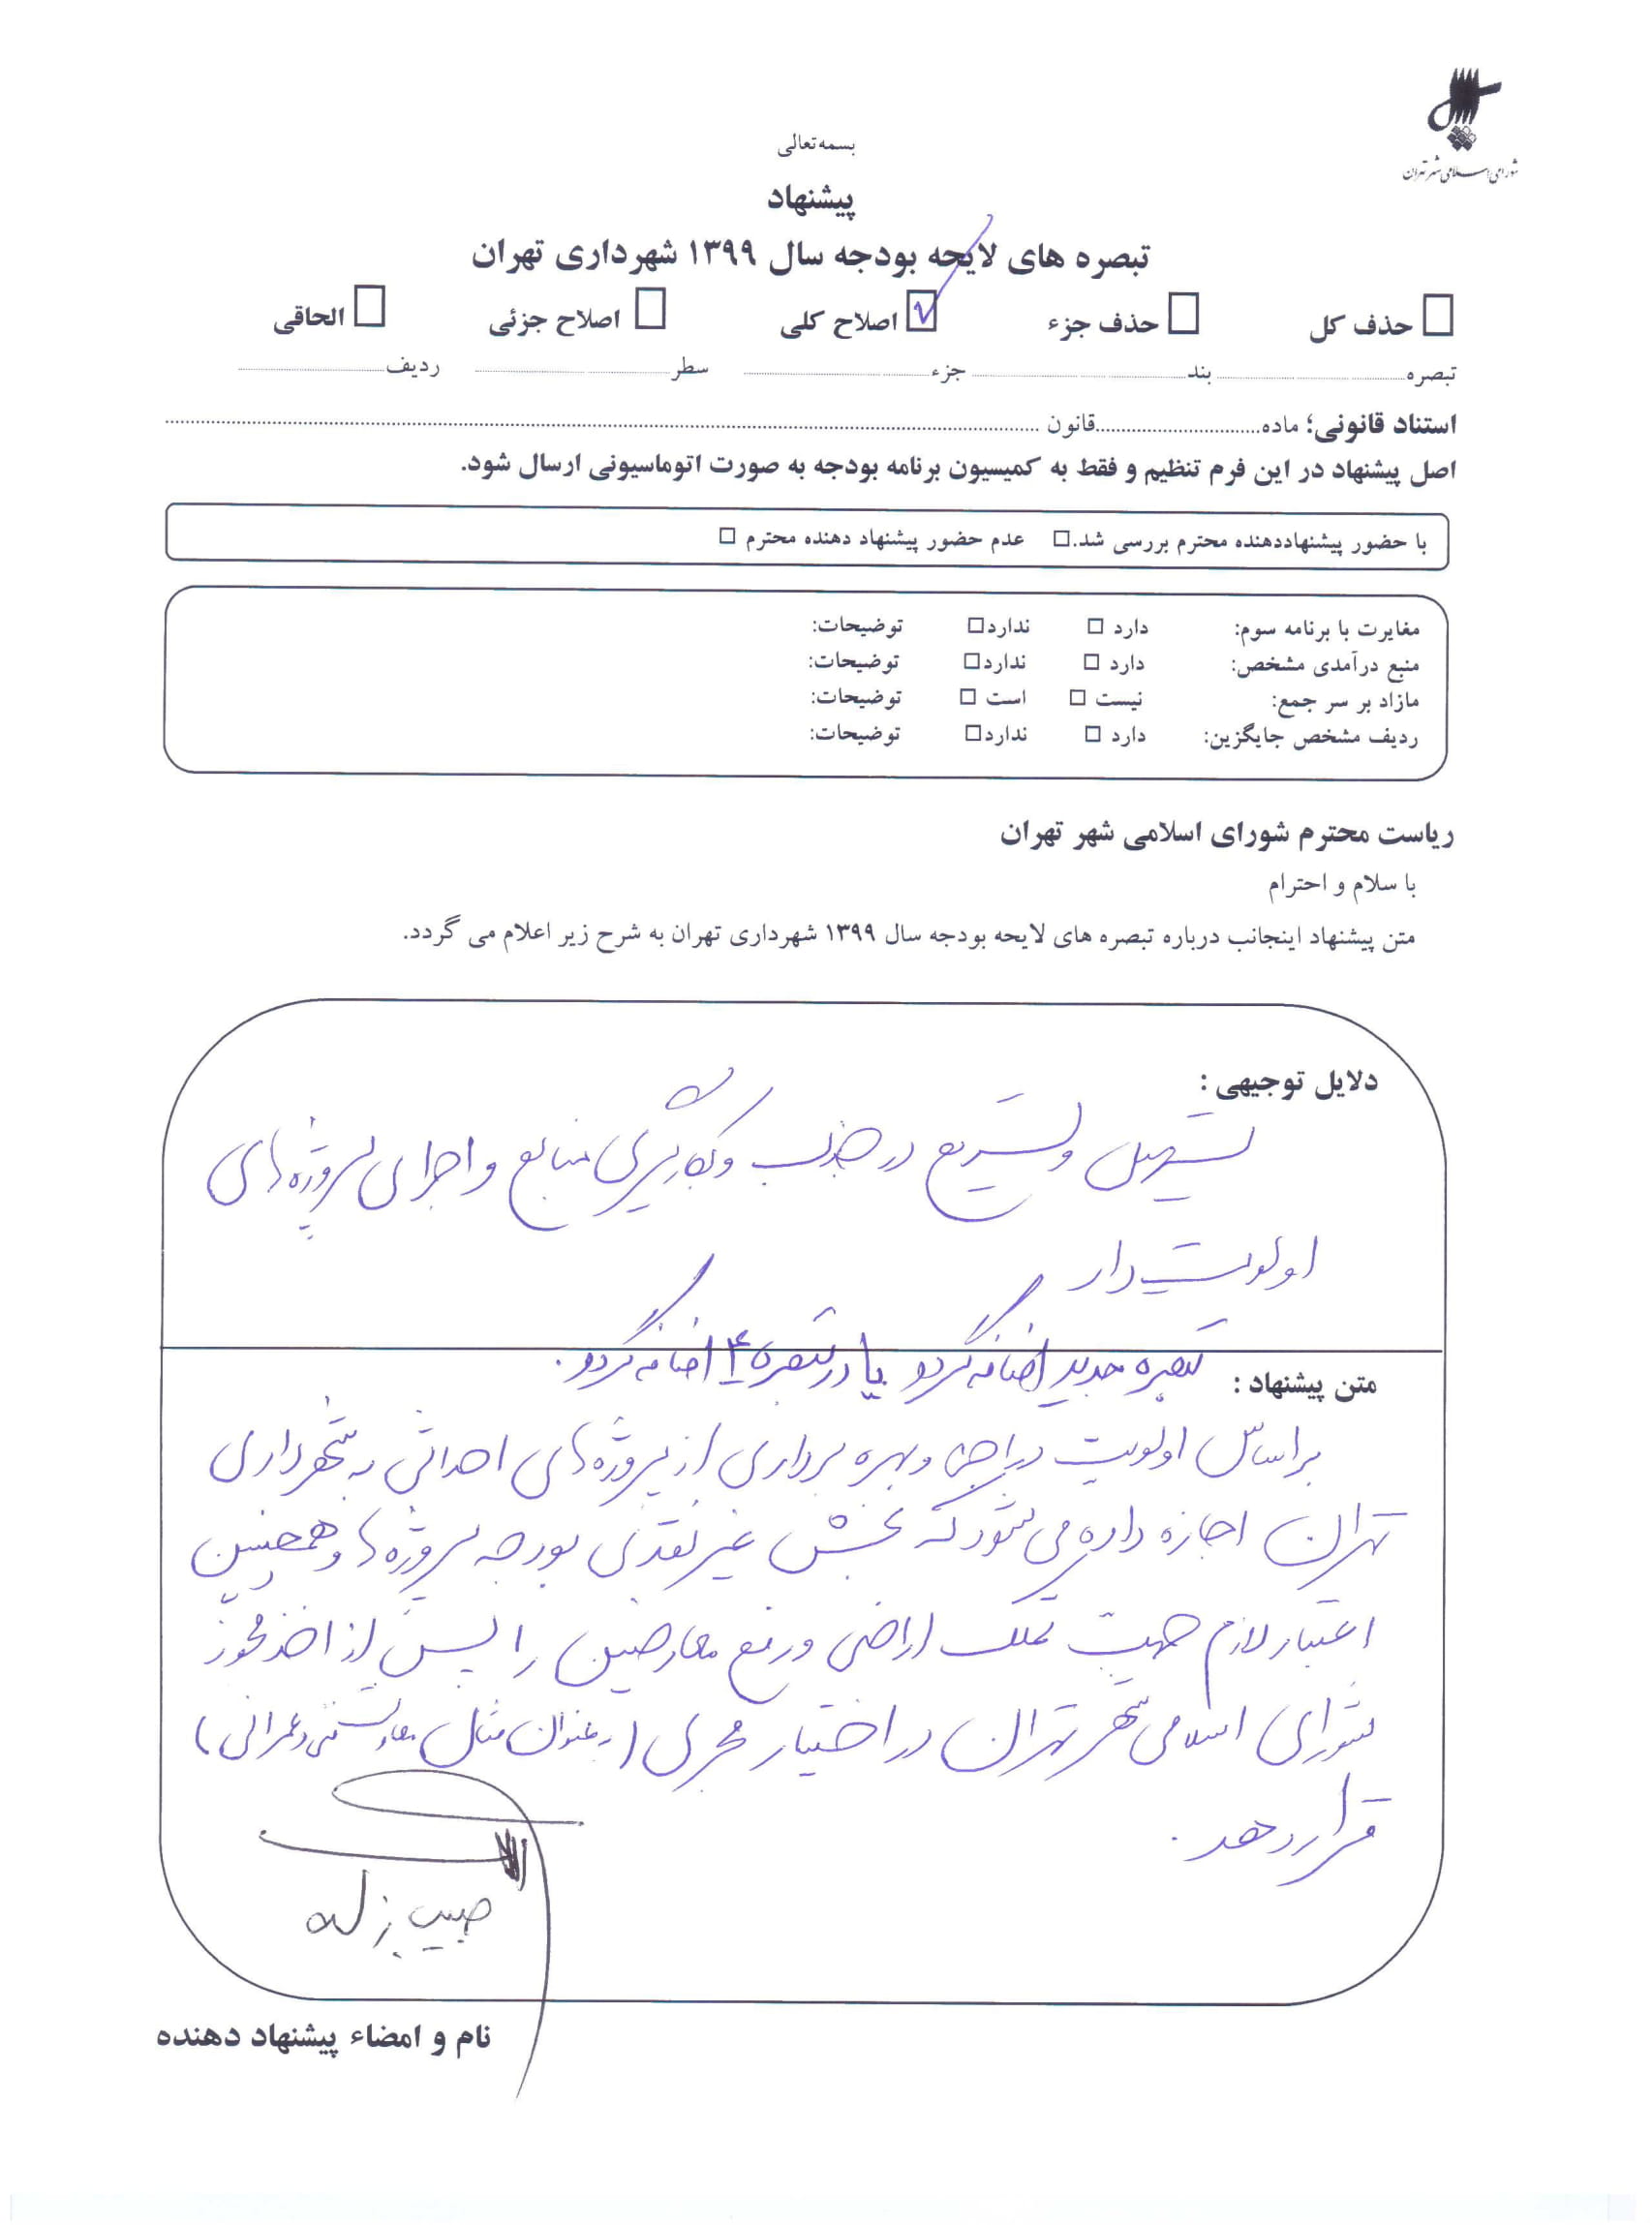 شورای اسلامی شهر تهران
بسمه تعالی
پیشنهاد
تبصره های لایحه بودجه سال ۱۳۹۹ شهرداری تهران
حذف کل حذف جزء اصلاح کلی اصلاح جزئی الحاقی
تبصره بند جزء سطر ردیف
استناد قانونی؛ ماده قانون
اصل پیشنهاد در این فرم تنظیم و فقط به کمیسیون برنامه بودجه به صورت اتوماسیونی ارسال شود.
با حضور پیشنهاددهنده محترم بررسی شد. عدم حضور پیشنهاد دهنده محترم
مغایرت با برنامه سوم: دارد ندارد توضیحات:
منبع درآمدی مشخص: دارد ندارد توضیحات:
مازاد بر سر جمع: نیست است توضیحات:
ردیف مشخص جایگزین: دارد ندارد توضیحات:
ریاست محترم شورای اسلامی شهر تهران
با سلام و احترام
متن پیشنهاد اینجانب درباره تبصره های لایحه بودجه سال ۱۳۹۹ شهرداری تهران به شرح زیر اعلام می گردد.
دلایل توجیهی :
تسهیل و تسریع در جذب و بکارگیری منابع و اجرای پروژه‌های
اولویت‌دار
تبصره جدید اضافه گردد یا در تبصره ۴ اضافه گردد.
متن پیشنهاد :
براساس اولویت در اجرا و بهره برداری از پروژه‌های احداثی به شهرداری
تهران اجازه داده می شود که بخش غیر نقدی بودجه پروژه‌ها و همچنین
اعتبار لازم جهت تملک اراضی و رفع معارضین را پس از اخذ مجوز
شورای اسلامی شهر تهران در اختیار مجری (بعنوان مثال معاونت فنی و عمرانی)
قرار دهد.
حبیب زاده
نام و امضاء پیشنهاد دهنده